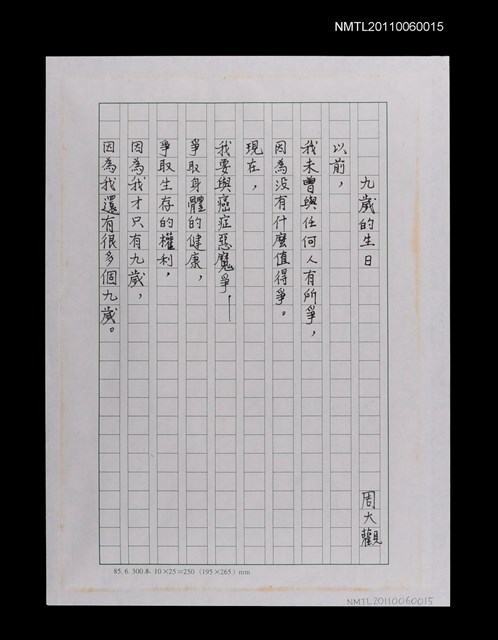 NMTL20110060015
九歲的生日
周大觀
以前，
我未曾與任何人有所爭，
因為沒有什麼值得爭。
現在，
我要與癌症惡魔爭——
爭取身體的健康，
爭取生存的權利，
因為我才只有九歲，
因為我還有很多個九歲。
85. 6. 300本 10×25=250 (195×265) mm
NMTL20110060015